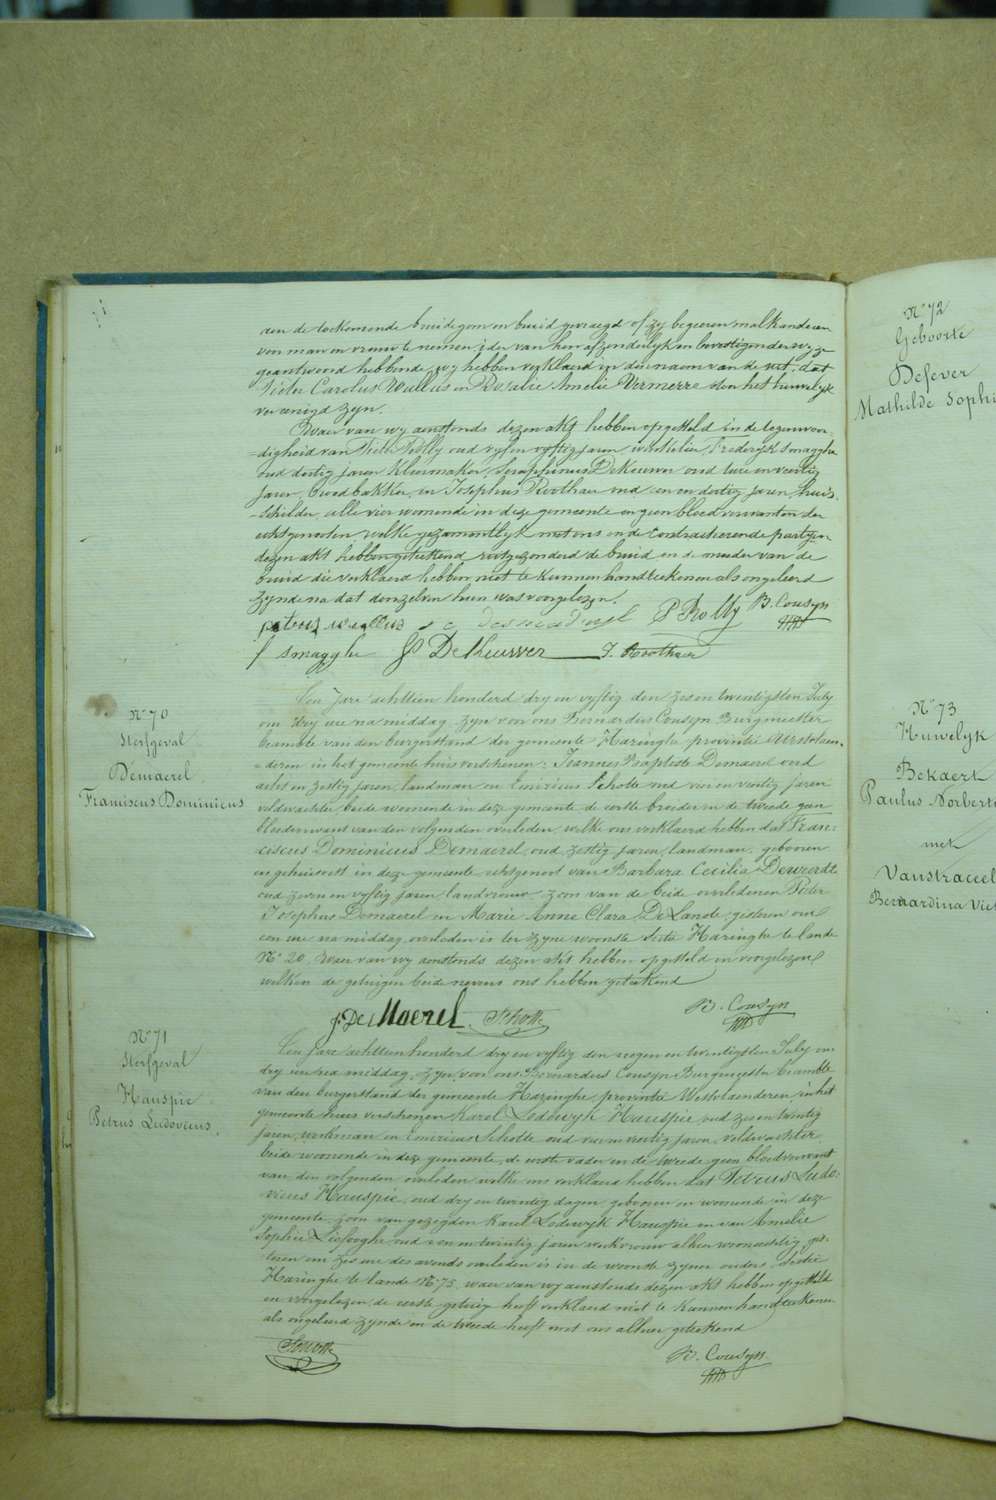 aen de toekomende bruidegom en bruid gevraegd of zy begeeren malkanderen
voor man en vrouw te nemen; ider van hen afzonderlyk en bevestigender wyze
geantwoord hebbende, wy hebben verklaerd in den naem van de wet, dat
Victor Carolus Wullus en Rosalie Amelie Vermerre door het huwelyk
vereenigd zyn.
Waer van wy aenstonds dezen akt hebben opgesteld in de tegenwoor-
=digheid van Rolly oud vyf en vyftig jaren winkelier, Frederyk Smagghe
oud dertig jaren Kleermaker, Seraphinus DeKeuwer oud twee en veertig
jaren, broodbakker, en Josephus Roothaer oud een en dertig jaren, huis-
=schilder, alle vier woonende in deze gemeente en geen bloedverwanten der
echtgenooten welke gezamentlyk met ons en de Contracteerende partyen
dezen akt hebben geteekend, uitgezonderd de bruid en de moeder van de
bruid die verklaerd hebben niet te kunnen handteekenen als ongeleerd
zynde na dat dezelven hun was voorgelezen.
P Rolly B. Cousyn
f smagghe S DeKeuwer J. Roothaer
N° 70
Sterfgeval
Demaerel
Franciscus Dominicus
Een Jare achttien honderd dry en vyftig den zes en twintigsten July
om dry ure na middag, zyn voor ons Bernardus Cousyn Burgmeester
beambte van den burgerstand der gemeente Haringhe provintie Westvlaen-
=deren in het gemeente huis verschenen; Joannes Baptiste Demaerel oud
acht en zestig jaren, landman en Emiricus Schotte oud vier en veertig jaren
veldwachter, beide woonende in deze gemeente de eerste broeder en de tweede geen
bloedverwant van den volgenden overleden, welke ons verklaerd hebben dat Fran-
ciscus Dominicus Demaerel, oud zestig jaren, landman, geboren
en gehuisvest in deze gemeente echtgenoot van Barbara Cecilia Deweerdt
oud zeven en vyftig jaren landvrouw, zoon van de beide overledenen Pieter
Josephus Demaerel en Marie Anne Clara De Lande, gisteren om
een ure na middag overleden is ter zyne woonste sectie Haringhe te lande
N° 20, waer van wy aenstonds dezen akt hebben opgesteld en voorgelezen
welken de getuigen beide nevens ons hebben geteekend
J. De Maerel Schotte B. Cousyn
N° 71
Sterfgeval
Hauspie
Petrus Ludovicus,
Een Jare achttien honderd dry en vyftig den negen en twintigsten July om
dry ure na middag, zyn voor ons Bernardus Cousyn Burgmeester beambte
van den burgerstand der gemeente Haringhe provintie Westvlaenderen, in het
gemeente huis verschenen Karel Lodewyk Hauspie, oud zes en twintig
jaren, werkman en Emiricus Schotte oud vier en veertig jaren, veldwachter,
beide woonende in deze gemeente, de eerste vader en de tweede geen bloedverwant
van den volgenden overleden welke ons verklaerd hebben dat Petrus Ludo-
vicus Hauspie, oud dry en twintig dagen, geboren en woonende in deze
gemeente zoon van gezegden Karel Lodewyk Hauspie en van Amelie
Sophie Liefooghe oud een en twintig jaren werkvrouw alhier woonachtig, gis-
teren om zes ure des avonds overleden is in de woonste zyner ouders, sectie
Haringhe te lande N° 75, waer van wy aenstonds dezen akt hebben opgesteld
en voorgelezen, de eerste getuige heeft verklaerd niet te kunnen handteekenen
als ongeleerd zynde en de tweede heeft met ons alhier geteekend
Schotte B. Cousyn
N° 72
Geboorte
Defever
Mathilde Sophi
N° 73
Huwelyk
Bekaert
Paulus Norbert
met
Vanstraceel
Bernardina Vict